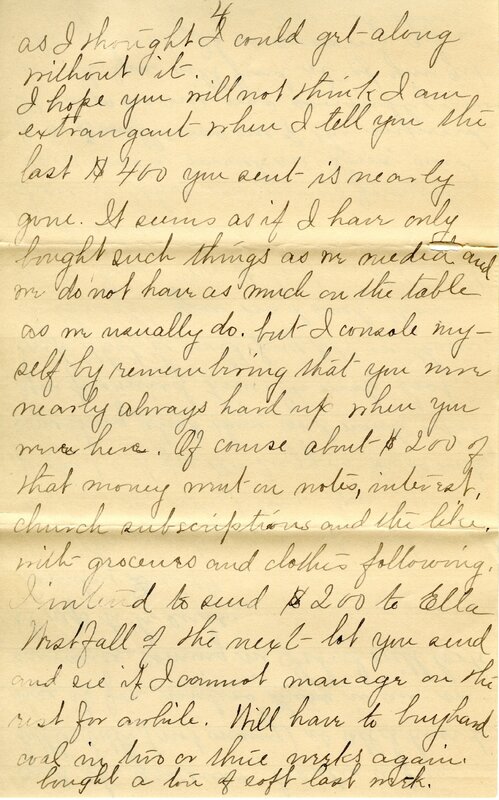 4
as I thought I could get along
without it.
I hope you will not think I am
extrangant when I tell you the
last $400 you sent is nearly
gone. It seems as if I have only
bought such things as we needed and
we do not have as much on the table
as we usually do. but I console my-
self by remembering that you were
nearly always hard up when you
were here. Of course about $200 of
that money went on notes, interest,
church subscriptions and the like.
with groceries and clothes following.
I intend to send $200 to Ella
Westfall of the next lot you send
and see if I cannot manage on the
rest for awhile. Will have to buy hard
coal in two or three weeks again.
bought a ton of soft last week.